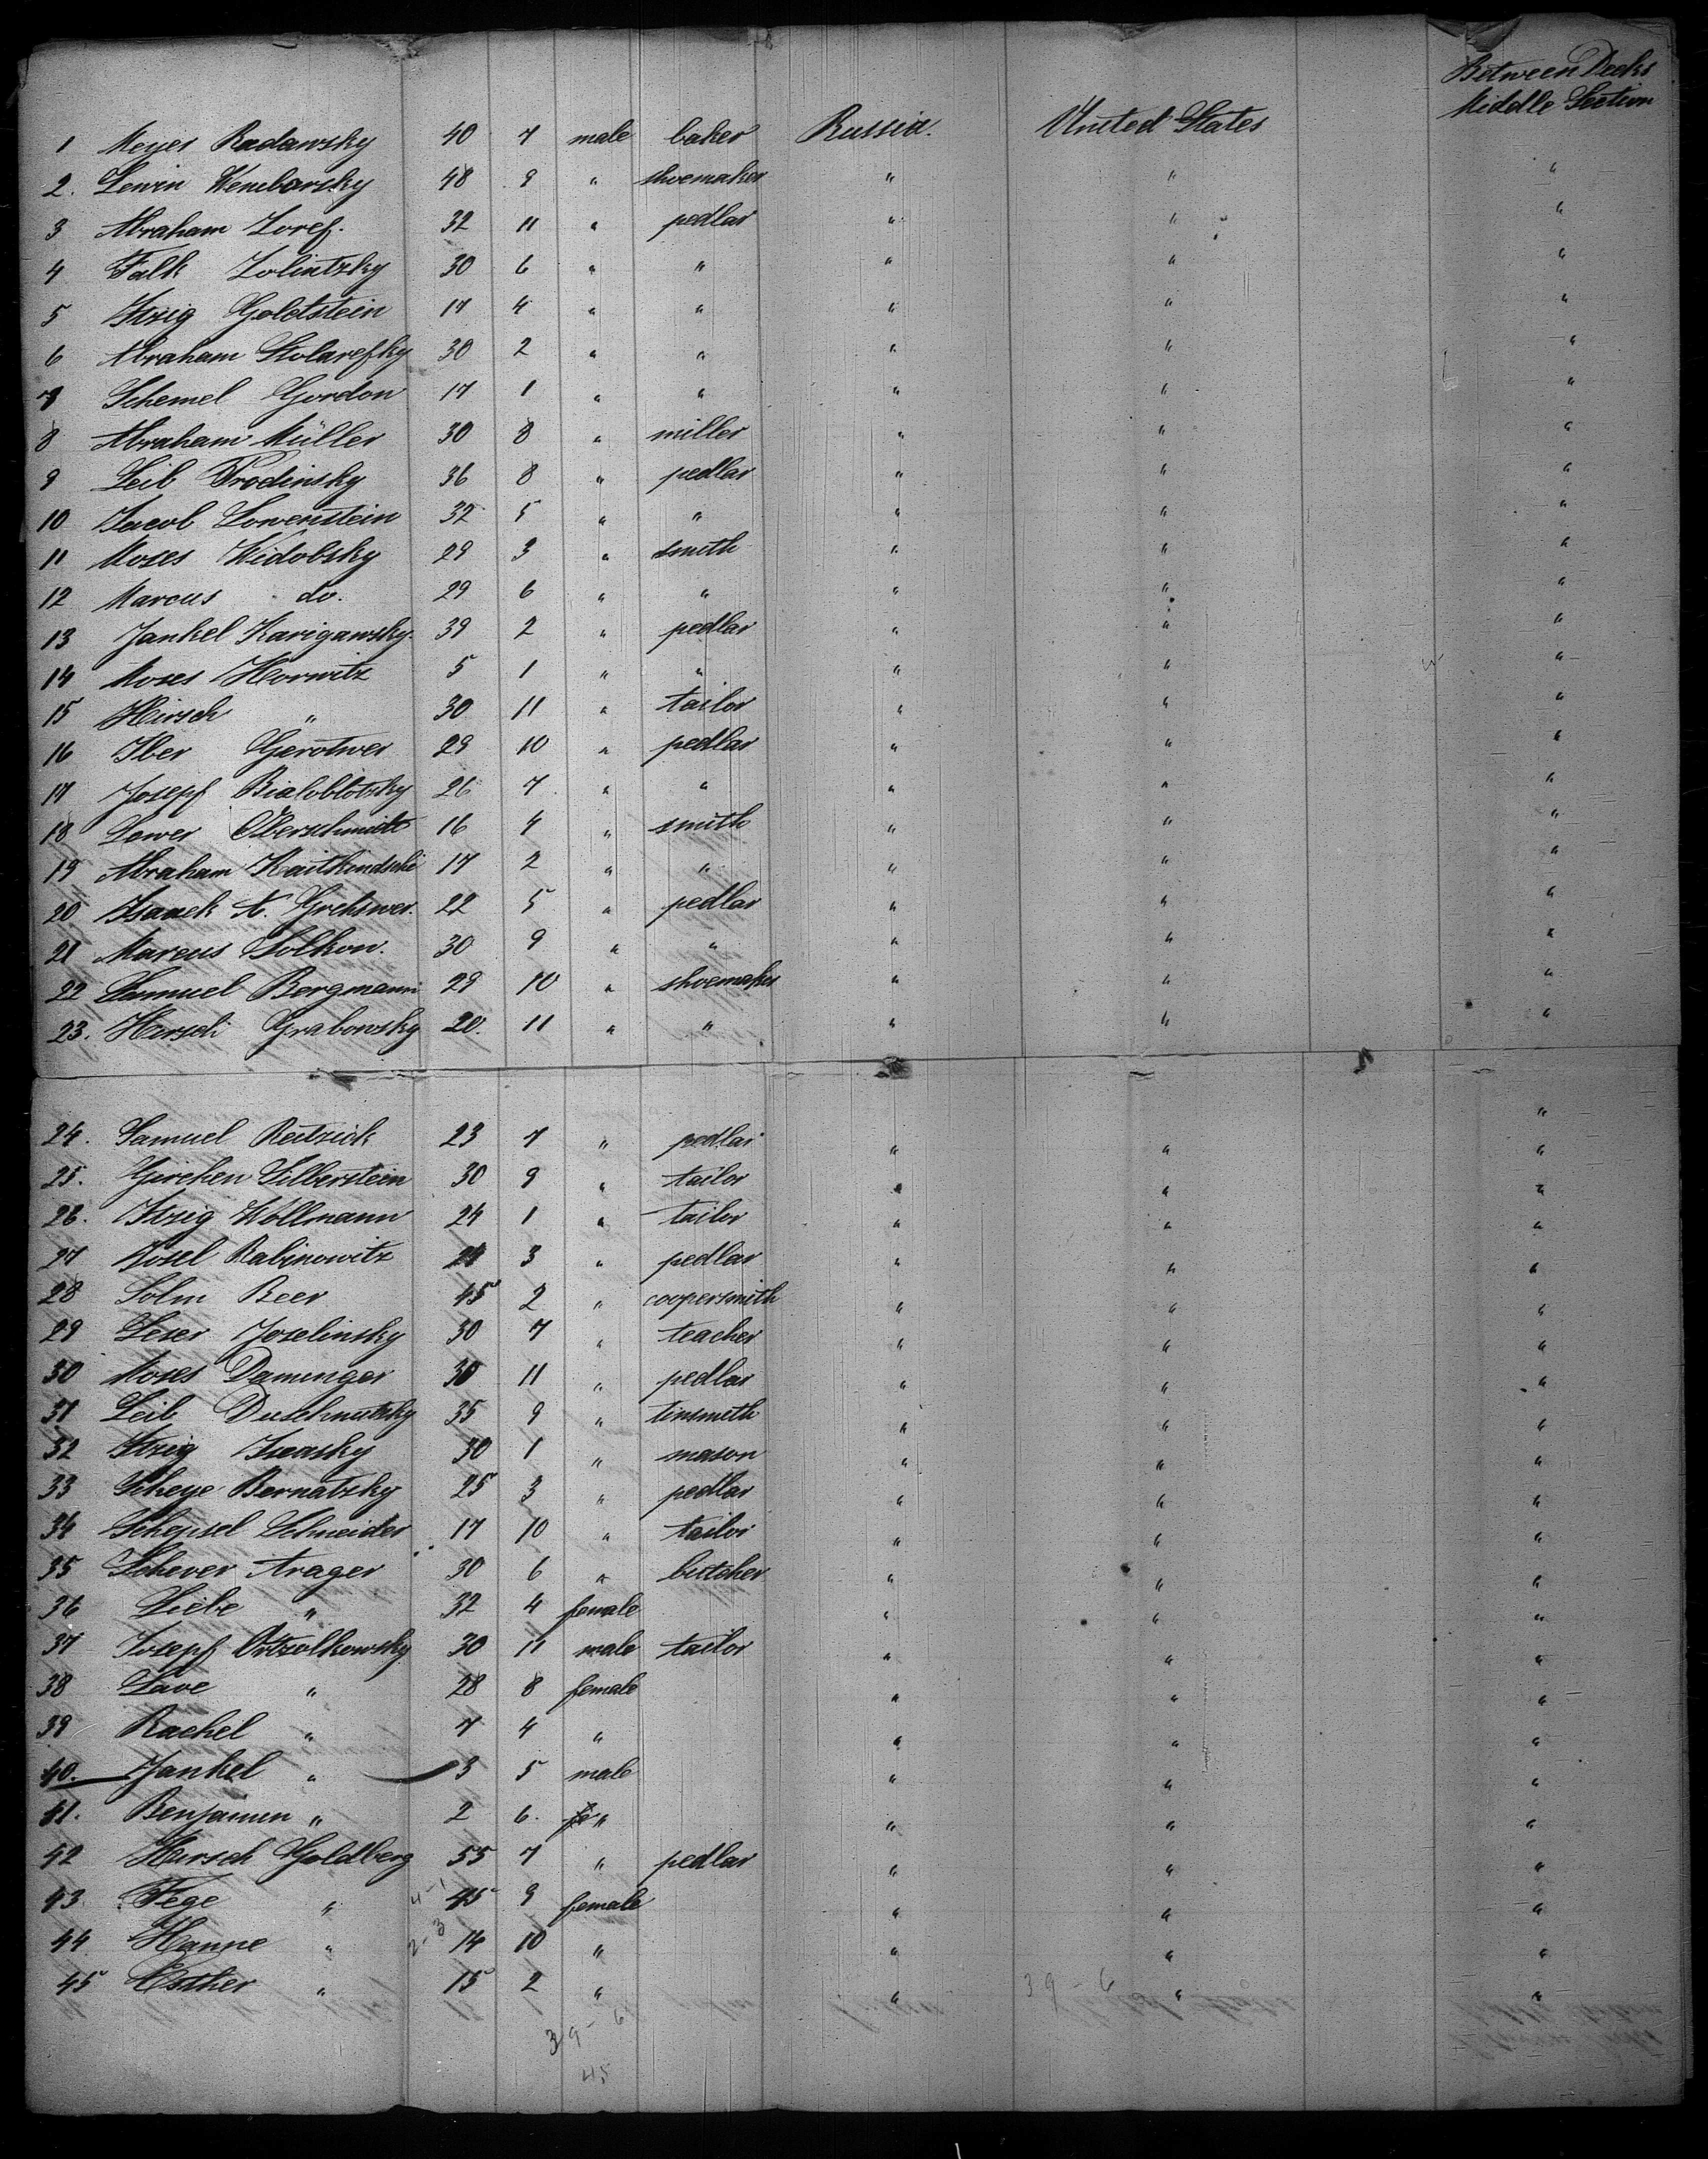 Between Decks
Middle Section
1 Meyer Radawsky 40 7 male baker Russia. United States
2. Lewin Wembarsky 48 9 " shoemaker " " "
3 Abraham Zoref. 32 11 " pedlar " " "
4 Falk Zolintzky 30 6 " " " " "
5 Itzig Goldstein 17 4 " " " " "
6 Abraham Stolarefsky 30 2 " " " " "
7 Schemel Gordon 17 1 " " " " "
8 Abraham Müller 30 8 " miller " " "
9 Leib Prodinsky 36 8 " pedlar " " "
10 Jacob Lowenstein 32 5 " " " " "
11 Moses Widobsky 29 3 " smith " " "
12 Marcus do. 29 6 " " " " "
13 Jankel Karigawsky. 39 2 " pedlar " " "
14 Moses Horwitz 5 1 " " " " "
15 Hirsch " 30 11 " tailor " " "
16 Iber Gerotwer 29 10 " pedlar " " "
17 Josepf Bialoblotzky 26 7 " " " " "
18 Lewer Oberschmidt 16 4 " smith " " "
19 Abraham 17 2 " " " " "
20 Isaack A. 22 5 " pedlar " " "
21 Marcus Solkon. 30 9 " " " " "
22 Samuel Bergmann 29 10 " shoemaker " " "
23. Hirsch Grabowsky 20. 11 " " " " "
24. Samuel Reitzick 23 7 " pedlar " " "
25. Girchen Silberstein 30 9 " tailor " " "
26. Itzig Wollmann 24 1 " tailor " " "
27 Josel Rabinowitz 3 " pedlar " " "
28 Solm Beer 45 2 " coopersmith " " "
29 Leser Joselinsky 30 7 " teacher " " "
30 Moses Damenger 30 11 " pedlar " " "
31 Leib Duschnutzky 35 9 " tinsmith " " "
32 Itzig Iwasky 30 1 " mason " " "
33 Scheye Bernatzky 25 3 " pedlar " " "
34 Schepsel Schneider 17 10 " tailor " " "
35 Schever Arager 30 6 " butcher " " "
36 Liebe " 32 4 female " " "
37 Josepf Ostzolkowsky 30 11 male tailor " " "
38 Lave " 28 8 female " " "
39 Rachel " 7 4 " " " "
40. Jankel " 3 5 male " " "
41. Benjamin " 2 6. " " " "
42 Hirsch Goldberg 55 7 " pedlar " " "
43 Fege " 4-1 45 9 female " " "
44 Hanne " 2-3 14 10 " " " "
45 Esther " 15 2 " " " "
39-6
39-6
45